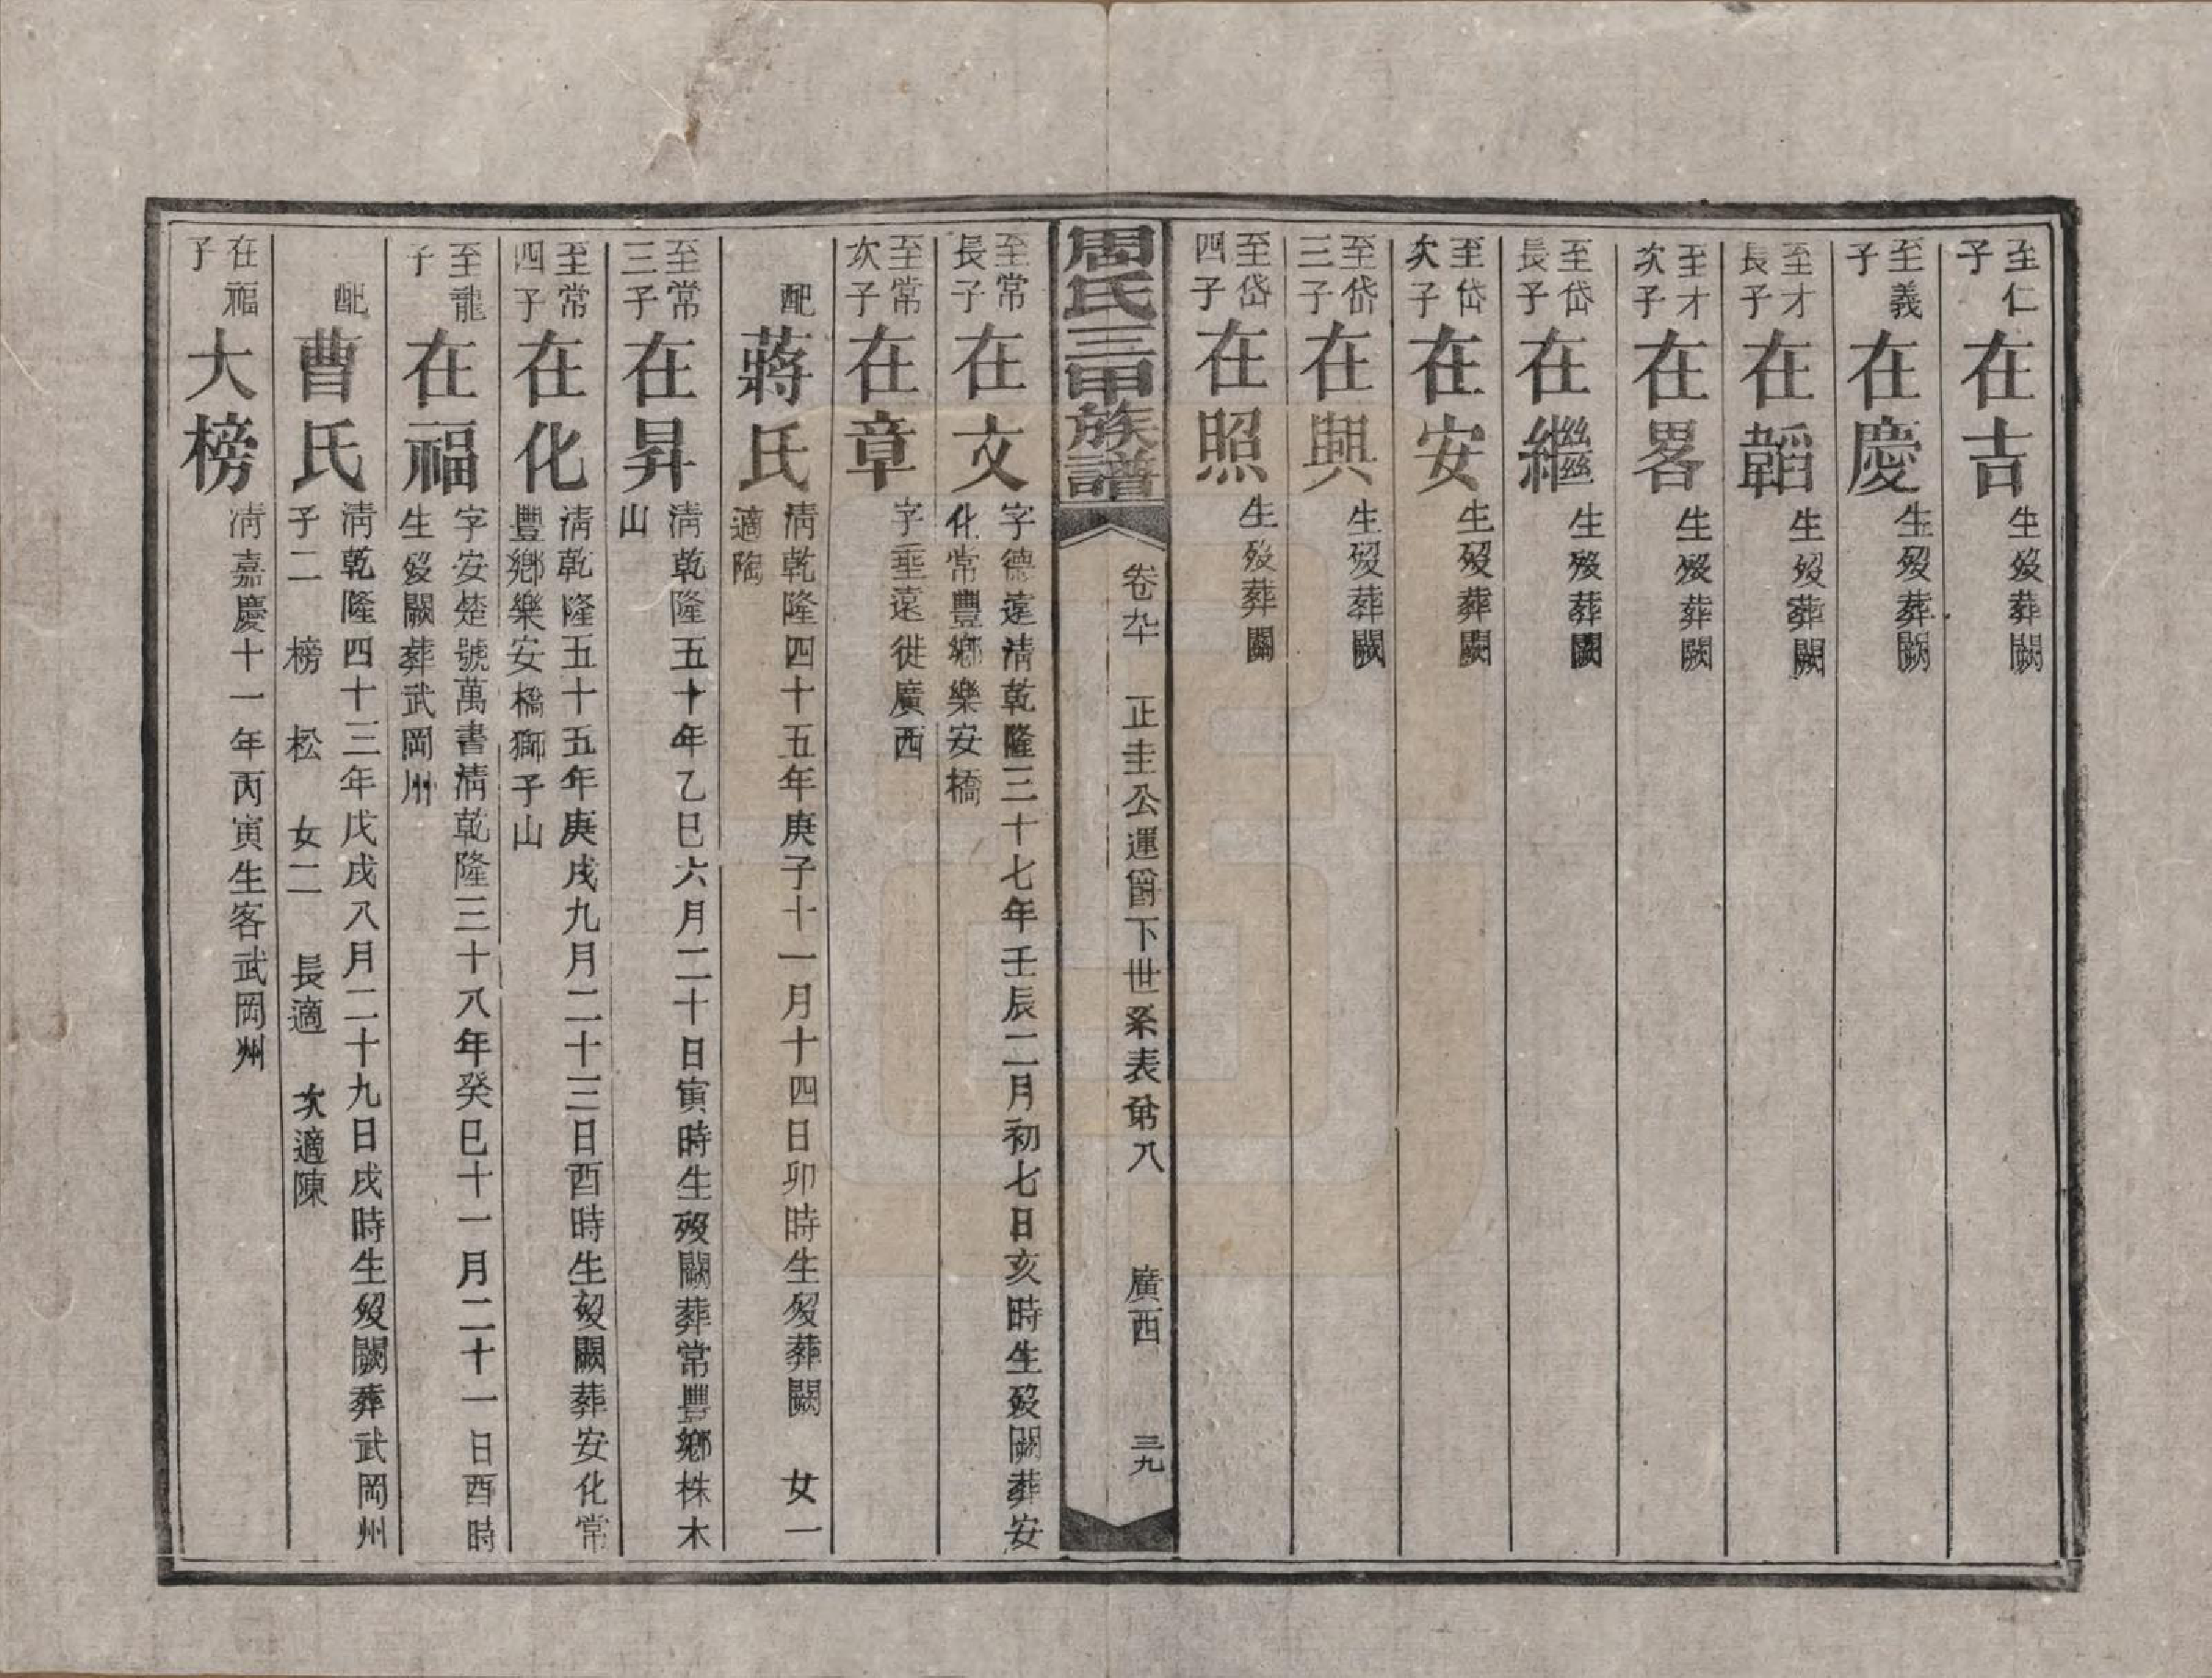 至仁子 在吉 生歿葬闕
至義子 在慶 生歿葬闕
至才長子 在韜 生歿葬闕
至才次子 在畧 生歿葬闕
至岱長子 在繼 生歿葬闕
至岱次子 在安 生歿葬闕
至岱三子 在興 生歿葬闕
至岱四子 在照 生歿葬闕
周氏三甲族譜 卷九 正圭公運下世系表第八 廣西 三九
至常長子 在文 字德遠淸乾隆三十七年壬辰二月初七日亥時生歿闕葬安
化常豐鄉樂安橋
至常次子 在章 字垂遠徙廣西
配 蔣氏 淸乾隆四十五年庚子十一月十四日卯時生歿葬闕 女一
適陶
至常三子 在昇 淸乾隆五十年乙巳六月二十日寅時生歿闕葬常豐鄉株木
山
至常四子 在化 淸乾隆五十五年庚戌九月二十三日酉時生歿闕葬安化常
豐鄉樂安橋獅子山
至龍子 在福 字安楚號萬書淸乾隆三十八年癸巳十一月二十一日酉時
生歿闕葬武岡州
配 曹氏 淸乾隆四十三年戊戌八月二十九日戌時生歿闕葬武岡州
子二 榜 松 女二 長適 次適陳
在福子 大榜 淸嘉慶十一年丙寅生客武岡州